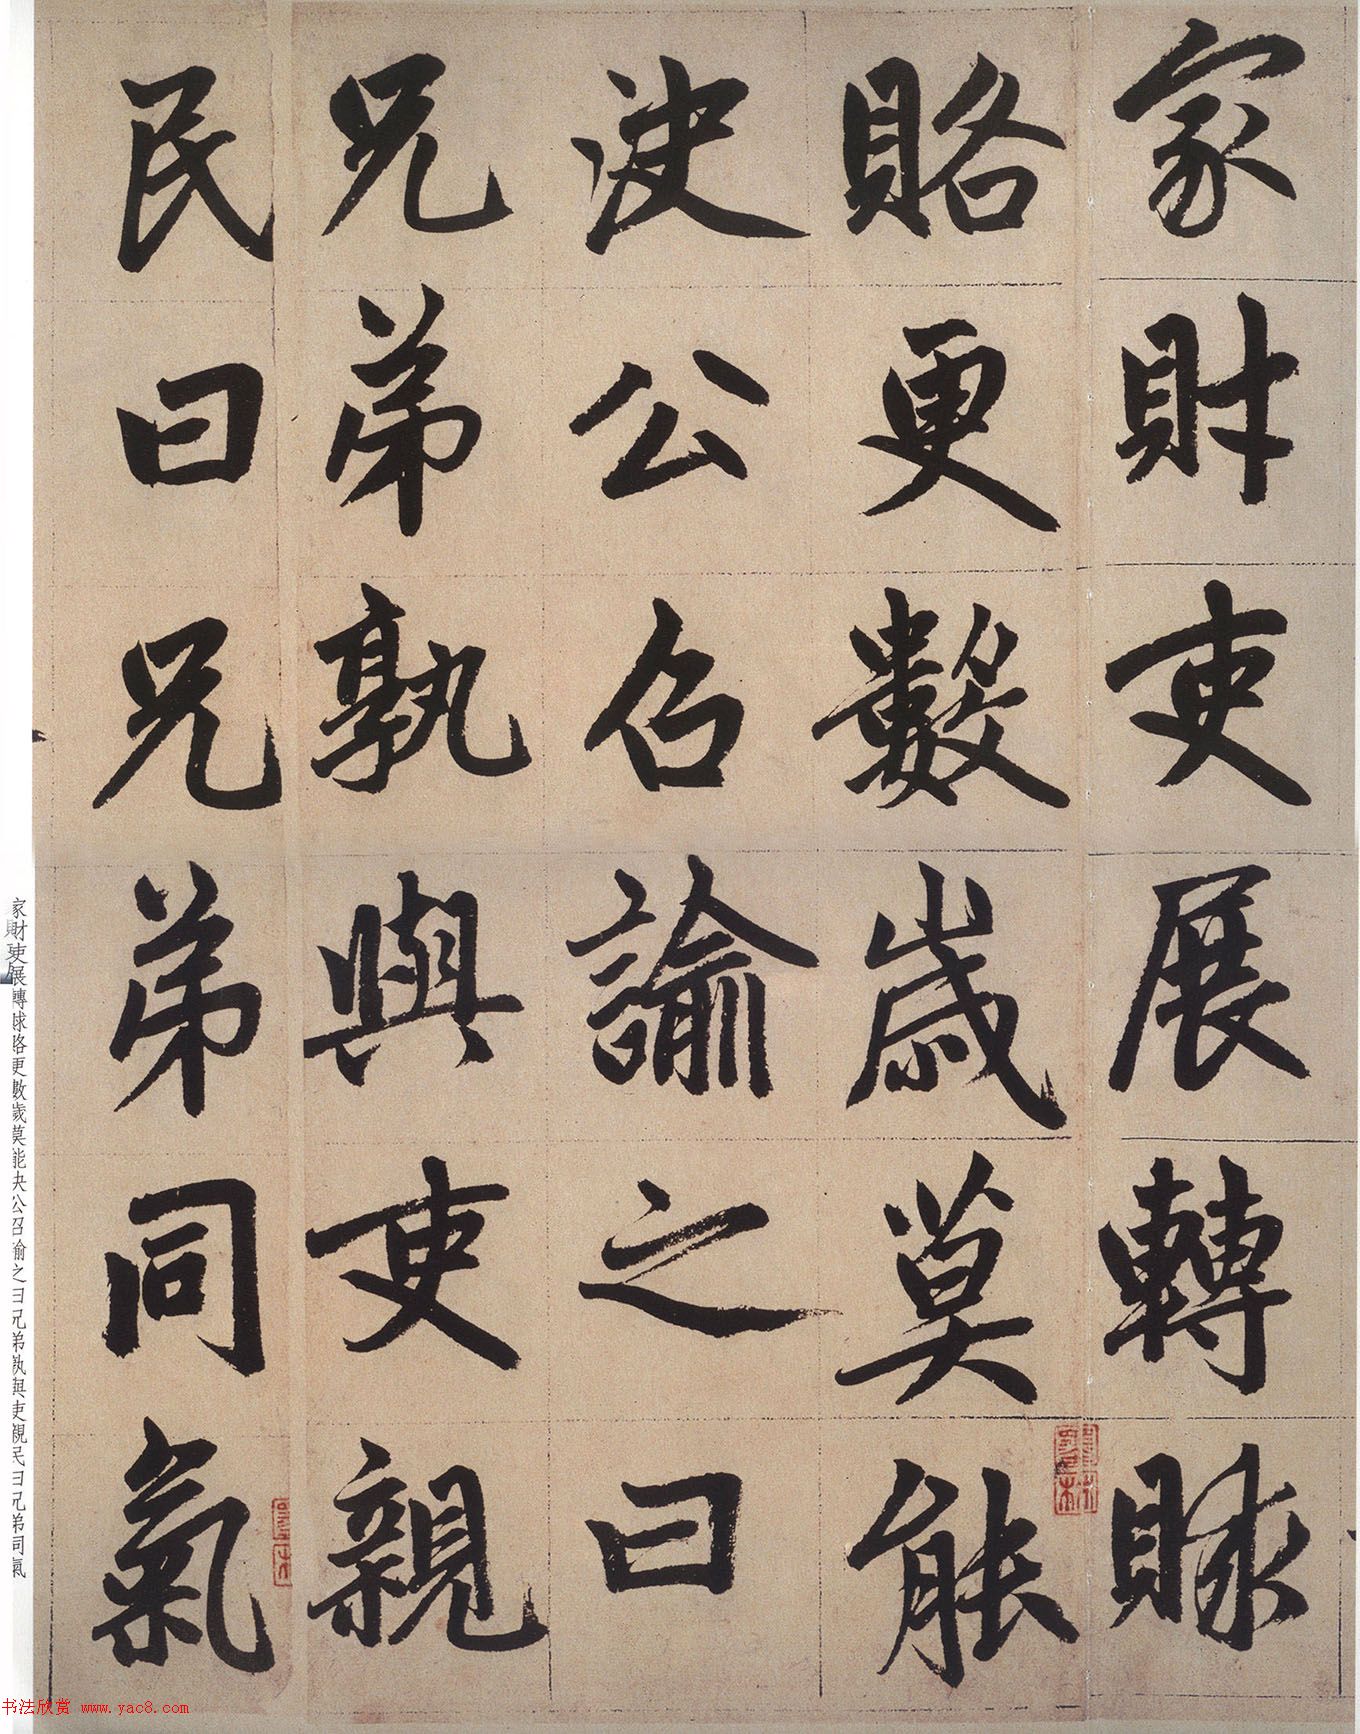 家財吏展轉賕
賂更數歲莫能
决公召諭之曰
兄弟孰與吏親
民曰兄弟同氣
家財吏展轉賕賂更數歲莫能决公召諭之曰兄弟孰與吏親民曰兄弟同氣
书法欣赏 www.yac8.com